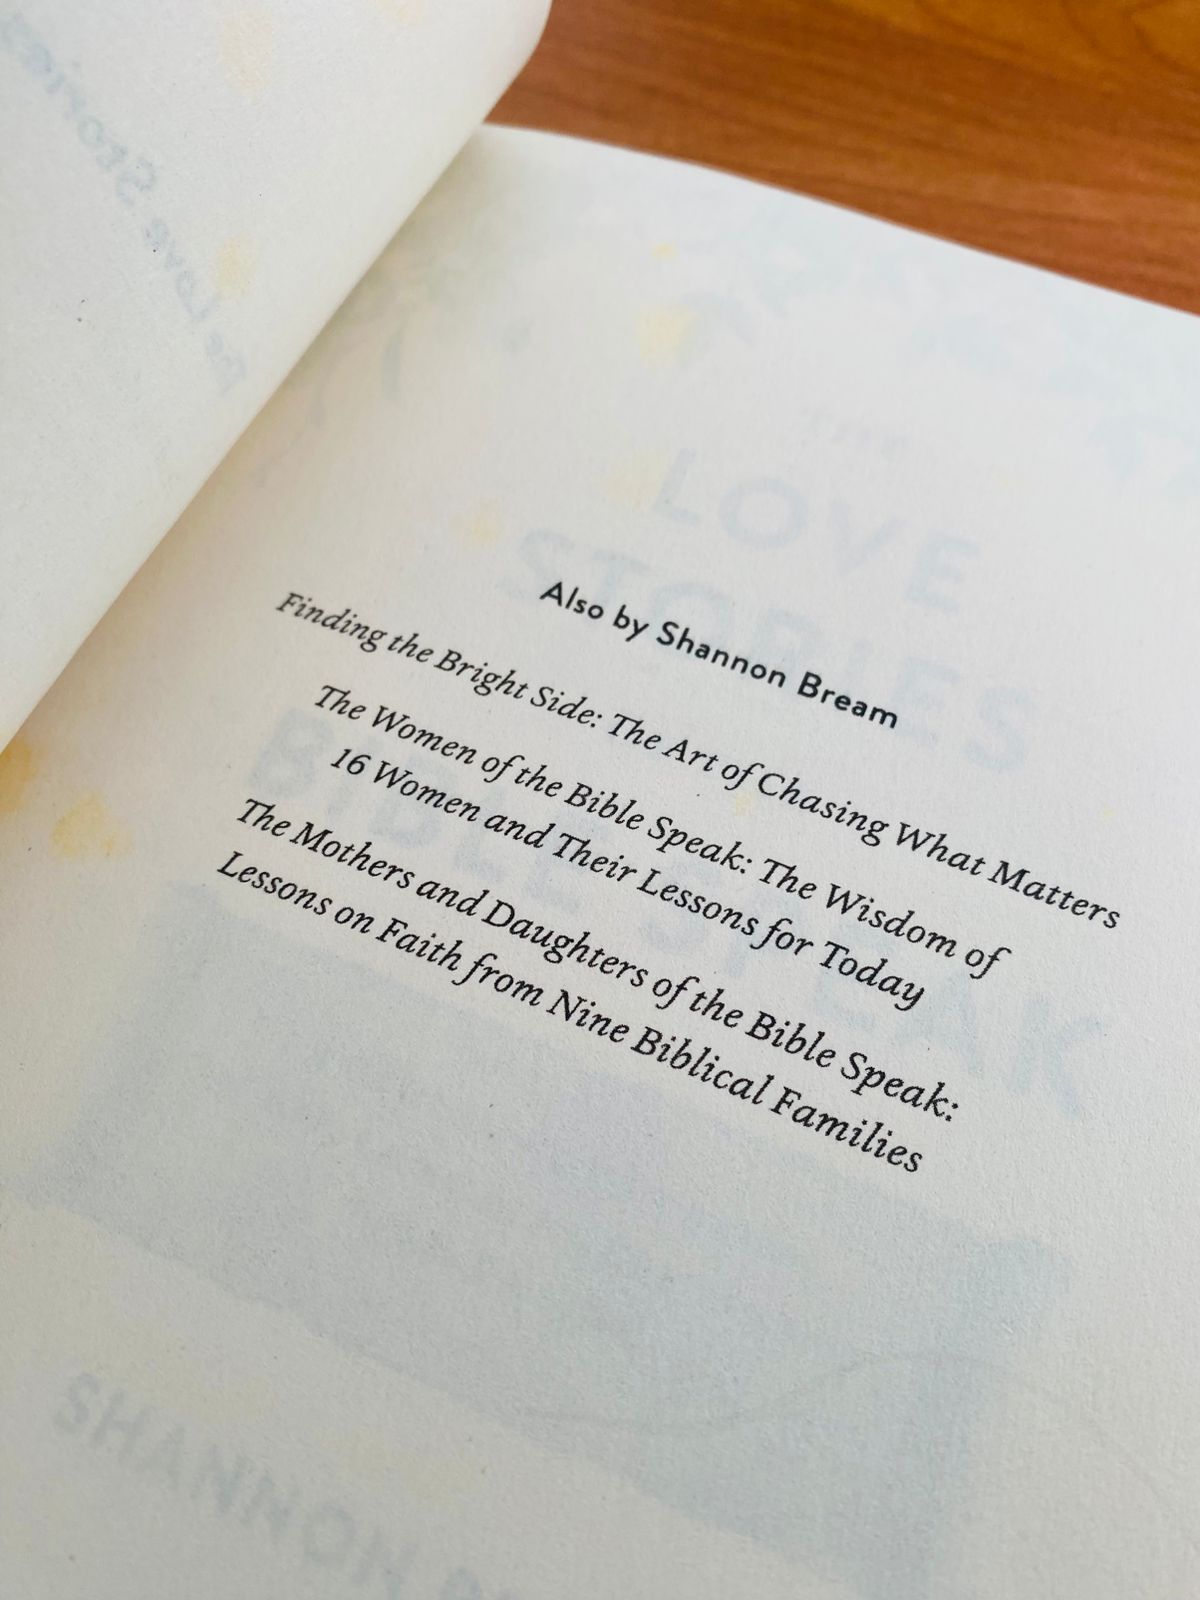 The Love Stories
THE
LOVE
STORIES
BIBLE
SPEAK
SHANNON
Also by Shannon Bream
Finding the Bright Side: The Art of Chasing What Matters
The Women of the Bible Speak: The Wisdom of
16 Women and Their Lessons for Today
The Mothers and Daughters of the Bible Speak:
Lessons on Faith from Nine Biblical Families